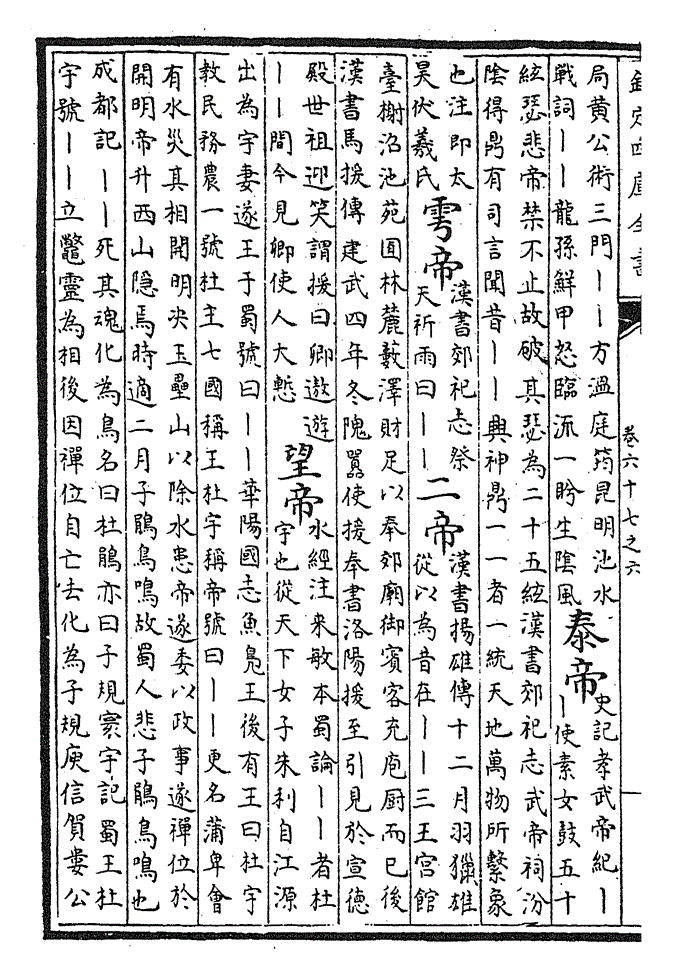 欽定四庫全書
卷六十七之六
局黄公術三門丨丨方溫庭筠昆明池水
戰詞丨丨龍孫鮮甲怒臨流一盼生陰風
泰帝
史記孝武帝紀丨
丨使素女鼓五十
絃瑟悲帝禁不止故破其瑟為二十五絃漢書郊祀志武帝祠汾
陰得鼎有司言聞昔丨丨興神鼎一一者一統天地萬物所繫象
也注即太
昊伏羲氏
雩帝
漢書郊祀志祭
天祈雨曰丨丨
二帝
漢書揚雄傳十二月羽獵雄
從以為昔在丨丨三王宫館
臺榭沼池苑囿林麓藪澤財足以奉郊廟御賓客充庖厨而已後
漢書馬援傳建武四年冬隗囂使援奉書洛陽援至引見於宣德
殿世祖迎笑謂援曰卿遨遊
丨丨間今見卿使人大慙
望帝
水經注来敏本蜀論丨丨者杜
宇也從天下女子朱利自江源
出為宇妻遂王于蜀號曰丨丨華陽國志魚鳬王後有王曰杜宇
教民務農一號杜主七國稱王杜宇稱帝號曰丨丨更名蒲卑會
有水災其相開明决玉壘山以除水患帝遂委以政事遂禪位於
開明帝升西山隐焉時適二月子鵑鳥鳴故蜀人悲子鵑鳥鳴也
成都記丨丨死其魂化為鳥名曰杜鵑亦曰子規寰宇記蜀王杜
宇號丨丨立鼈靈為相後因禪位自亡去化為子規庾信賀婁公